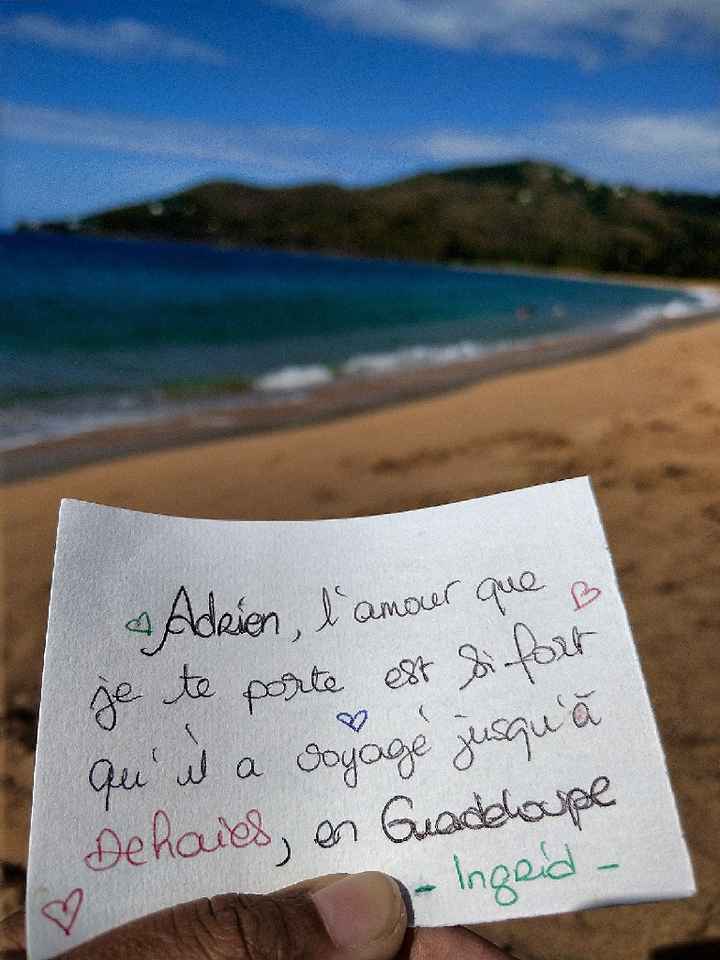 Adrien, l'amour que
je te porte est si fort
qu'il a voyagé jusqu'à
Dehaies, en Guadeloupe
- Ingrid -